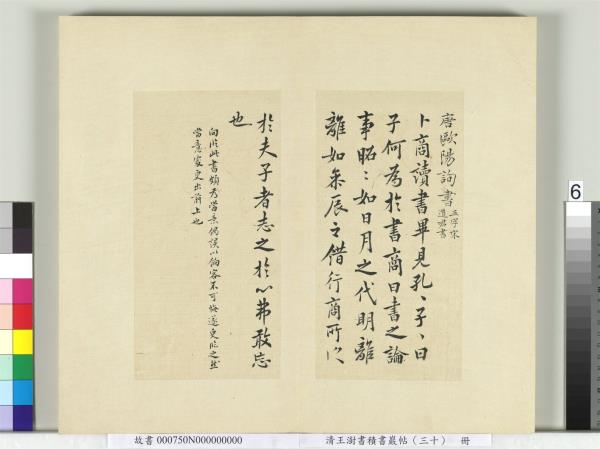 唐歐陽詢書
五字宋
道君書
卜商讀書畢見孔〻子〻曰
子何為於書商曰書之論
事昭〻如日月之代明離
離如參辰之錯行商所以
於夫子者志之於心弗敢忘
也
向臨此書頗為當意偶誤以餉客不可悔遂更臨之並
當意家更出前上也
6
故書 000750N000000000
清王澍書積書巖帖(三十) 冊